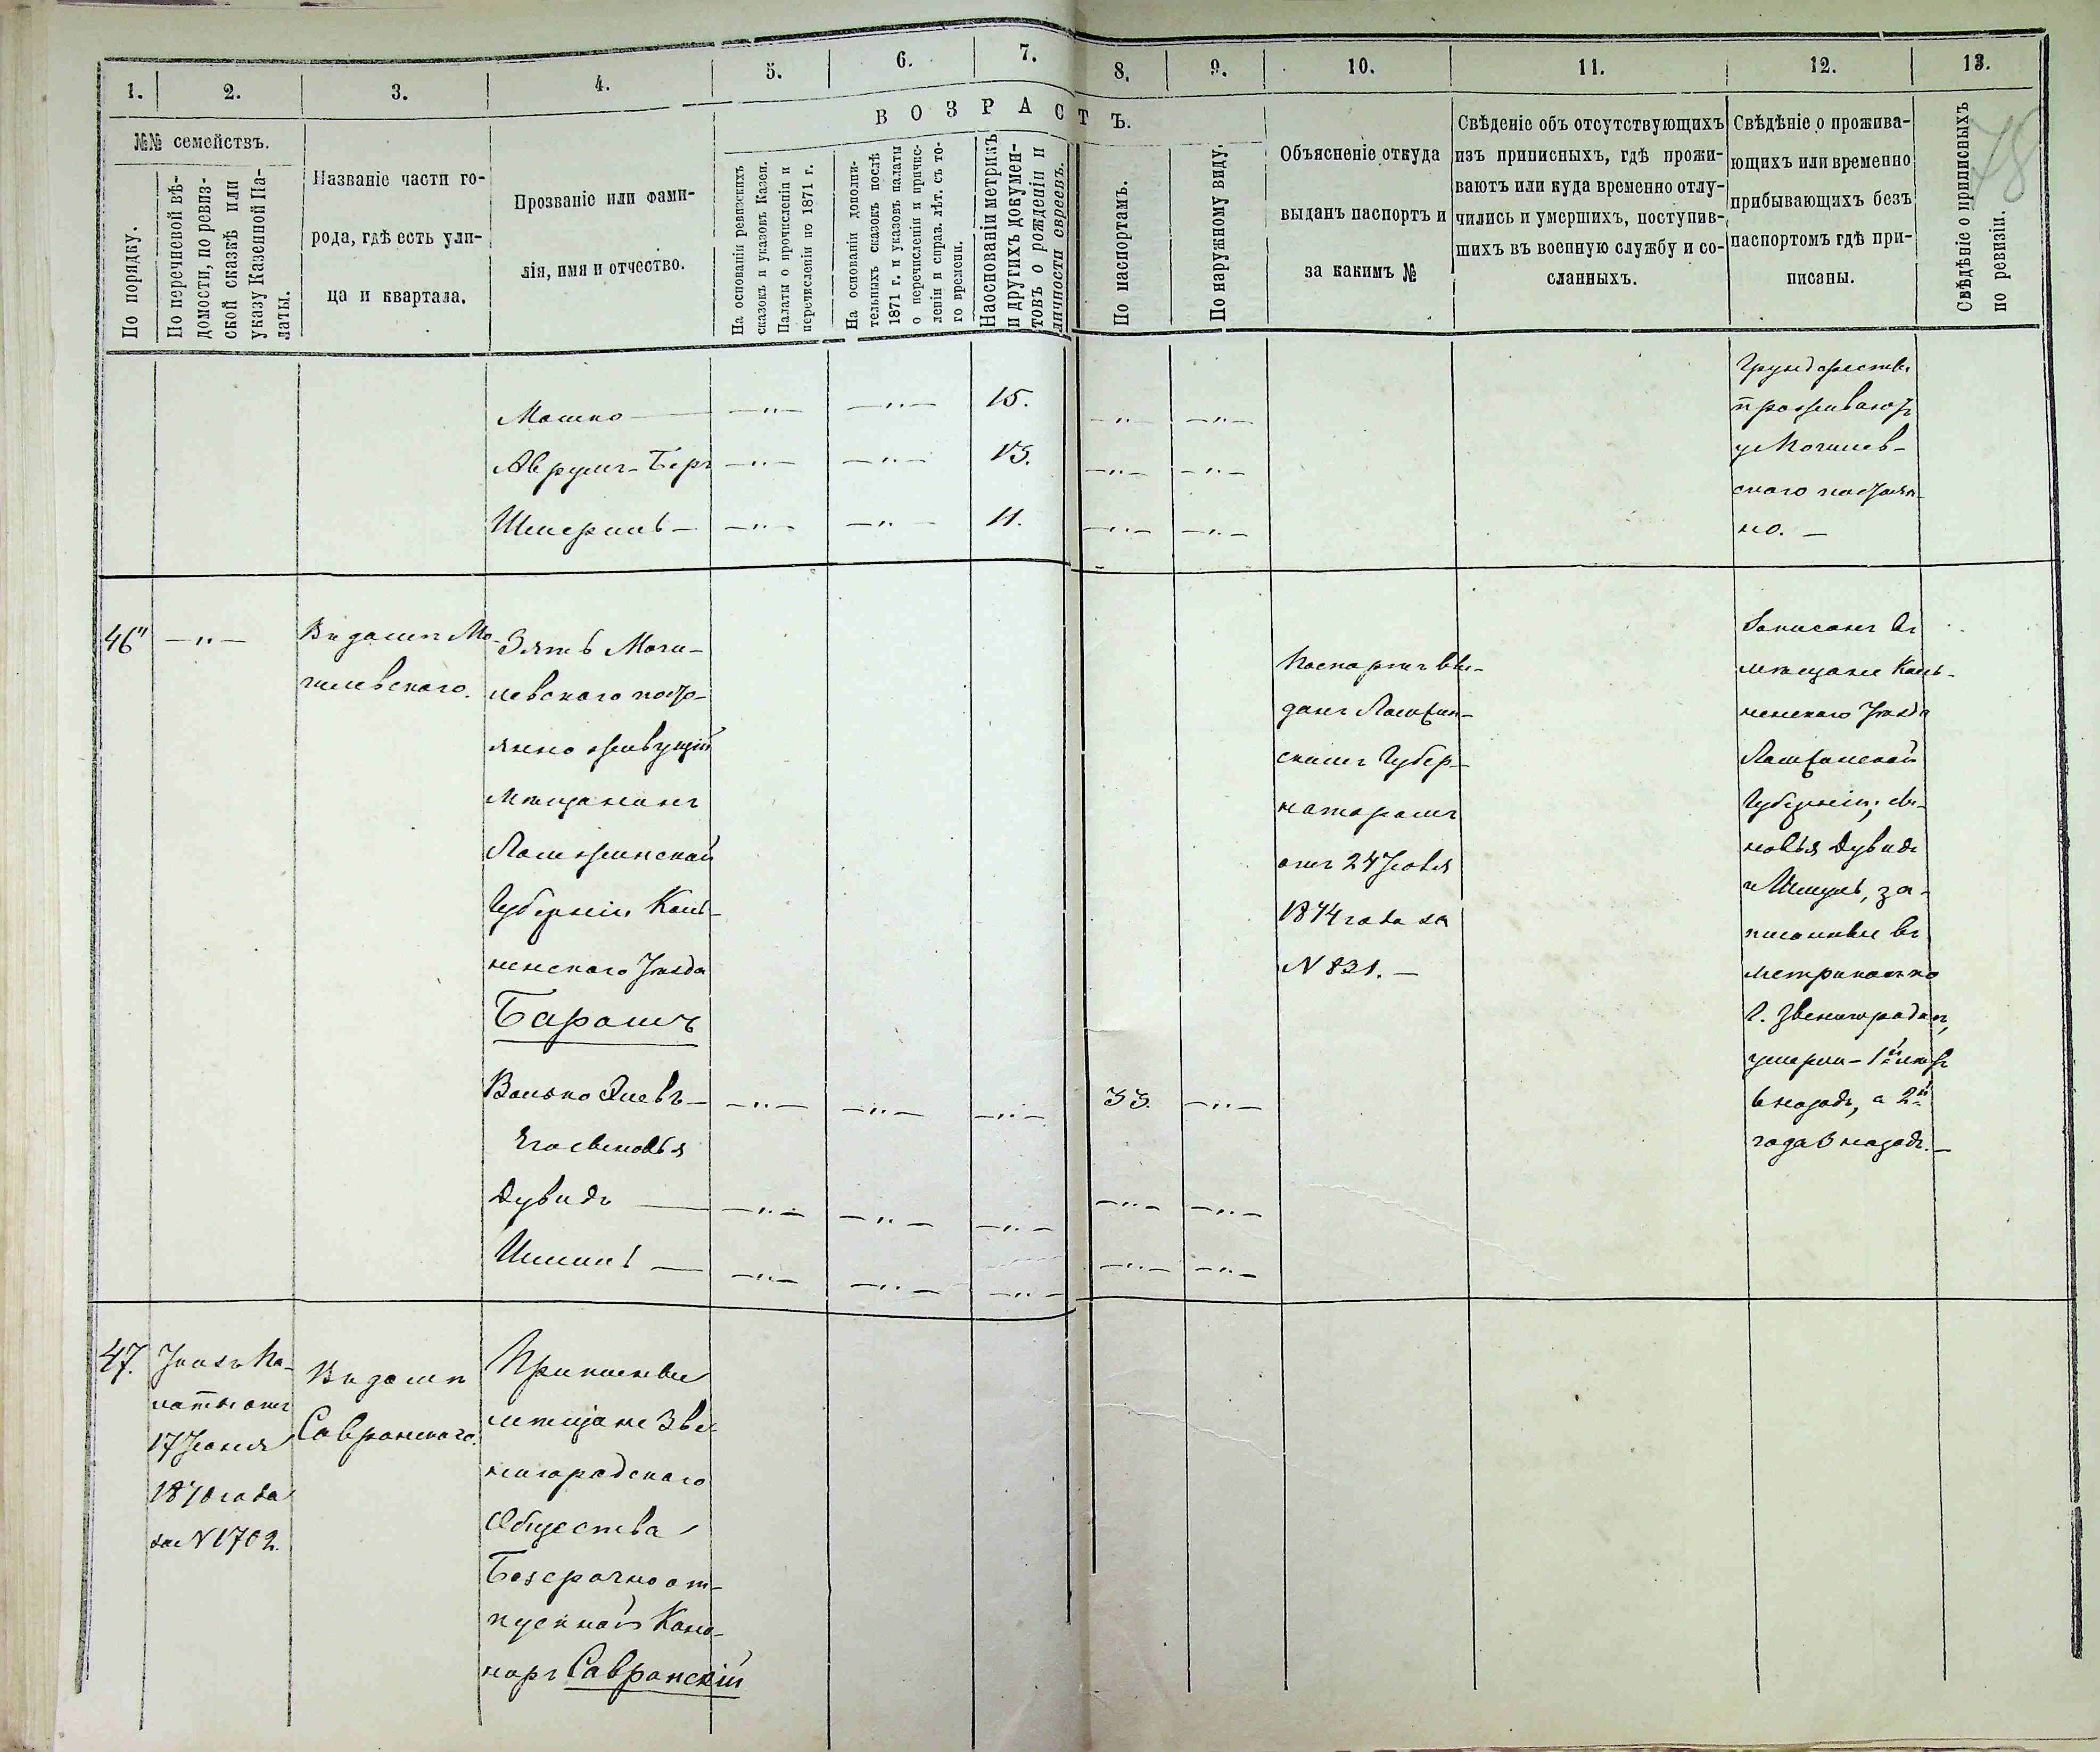 1.
2.
3.
4.
5.
6.
7.
8.
9.
10.
11.
12.
13.
ВОЗРАСТЪ.
№№ семействъ.
По порядку.
По перечневой вѣ-
домости, по ревиз-
ской сказкѣ или
указу Казенной Па-
латы.
Названіе части го-
рода, гдѣ есть ули-
ца и квартала.
Прозваніе или фами-
лія, имя и отчество.
На основаніи ревизскихъ
сказокъ и указовъ Казен.
Палаты о прочисленіи и
перечисленіи по 1871 г.
На основаніи дополни-
тельныхъ сказокъ послѣ
1871 г. и указовъ палаты
о перечисленіи и причис-
леніи и справ. лѣт. съ то-
го времени.
На основаніи метрикъ
и другихъ докумен-
товъ о рожденіи и
личности евреевъ.
По паспортамъ.
По наружному виду.
Объясненіе откуда
выданъ паспортъ и
за какимъ №
Свѣденіе объ отсутствующихъ
изъ приписныхъ, гдѣ прожи-
ваютъ или куда временно отлу-
чились и умершихъ, поступив-
шихъ въ военную службу и со-
сланныхъ.
Свѣдѣніе о прожива-
ющихъ или временно
прибывающихъ безъ
паспортомъ гдѣ при-
писаны.
Свѣдѣніе о приписныхъ
по ревизіи.
78
Мошко — 15.
Аврумъ-Беръ 13.
Шмериль — 11.
проживаютъ
у Могилев-
скаго постоян-
но. —
46
Въ домѣ Мо-
гилевскаго.
Зять Моги-
левскаго посто-
янно живущій
мѣщанинъ
Ломжинской
Губерніи Коль-
ненскаго Уѣзда
Баромъ
Волько —
Его сыновья
Дувидъ —
33.
Паспортъ вы-
данъ Ломжин-
скимъ Губер-
наторомъ
отъ 24
1874 года за
№ 831. —
Записанъ въ
мѣщане Коль-
ненскаго Уѣзда
Ломжинской
Губерніи, сы-
новья Дувидъ
и Шмуль, за-
писанные въ
метрикахъ по
г. Звенигородкѣ,
умерли — 1й лѣтъ
6 назадъ, а 2й
года 3 назадъ. —
47.
Указъ Па-
латы отъ
17
1870 года
за № 1702.
Въ домѣ
Савранскаго.
Приписные
мѣщане Зве-
нигородскаго
Общества
Безсрочноот-
пускной Кано-
ниръ Савранскій